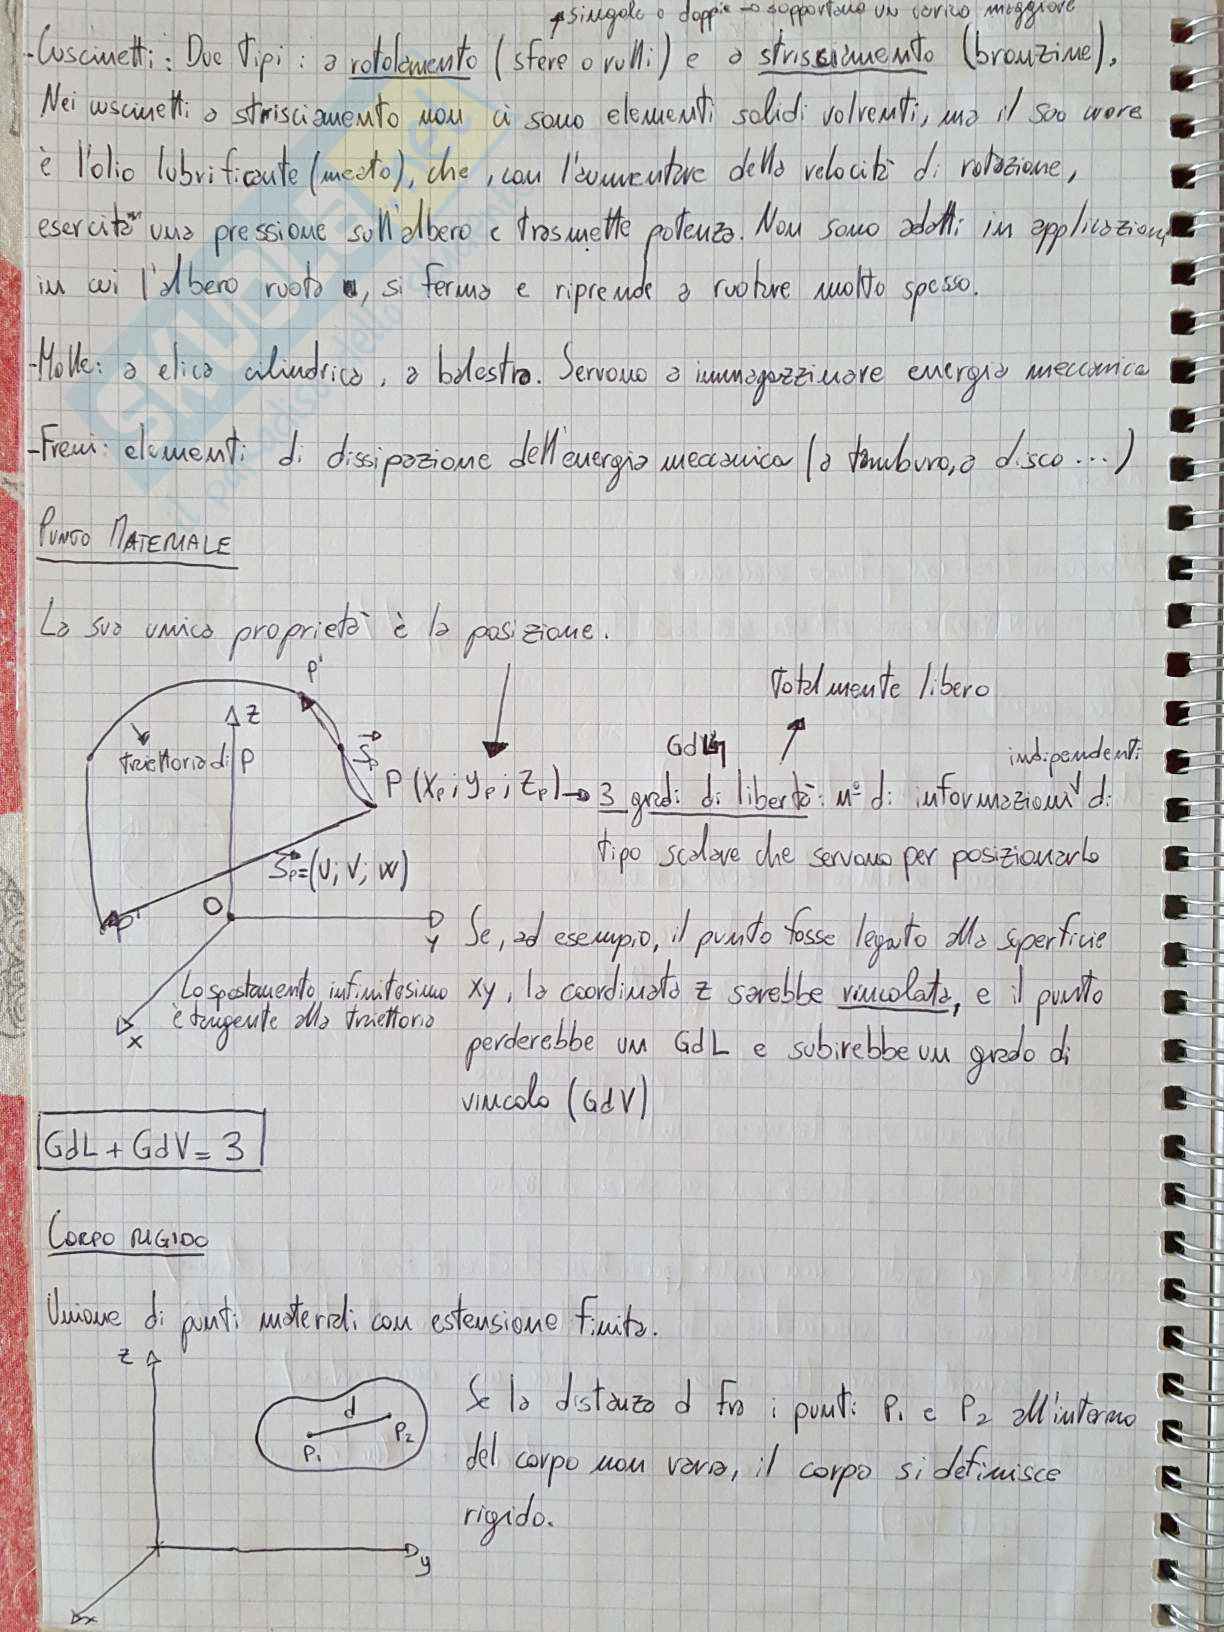 singole o doppie → sopportano un carico maggiore
- Cuscinetti: Due tipi: a rotolamento (sfere o rulli) e a strisciamento (bronzine).
Nei cuscinetti a strisciamento non ci sono elementi solidi volventi, ma il suo cuore
è l'olio lubrificante (meato), che, con l'aumentare della velocità di rotazione,
esercita una pressione sull'albero e trasmette potenza. Non sono adatti in applicazioni
in cui l'albero ruota, si ferma e riprende a ruotare molto spesso.
- Molle: a elica cilindrica, a balestra. Servono a immagazzinare energia meccanica
- Freni: elementi di dissipazione dell'energia meccanica (a tamburo, a disco ...)
PUNTO MATERIALE
La sua unica proprietà è la posizione.
P'
Totalmente libero
z
GdL
indipendenti
traiettoria di P
S⃗p
P (xp; yp; zp) → 3 gradi di libertà: n° di informazioni di
tipo scalare che servono per posizionarlo
S⃗p = (U; V; W)
P'
O
y
x
Se, ad esempio, il punto fosse legato alla superficie
xy, la coordinata z sarebbe vincolata, e il punto
perderebbe un GdL e subirebbe un grado di
vincolo (GdV)
Lo spostamento infinitesimo
è tangente alla traiettoria
GdL + GdV = 3
CORPO RIGIDO
Unione di punti materiali con estensione finita.
z
d
P1
P2
y
x
Se la distanza d fra i punti P1 e P2 all'interno
del corpo non varia, il corpo si definisce
rigido.
SKUOLA.net
il paradiso dello